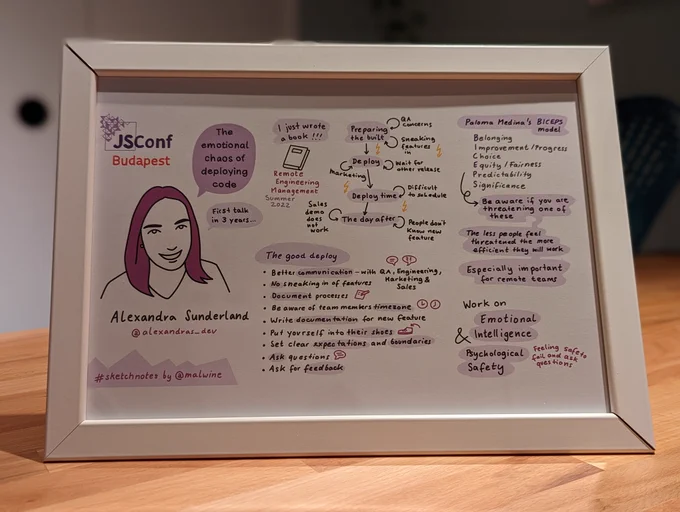 JSConf
Budapest
The
emotional
chaos of
deploying
code
First talk
in 3 years...
Alexandra Sunderland
@alexandras_dev
#sketchnotes by @malwine
I just wrote
a book !!!
Remote
Engineering
Management
Summer
2022
Preparing
the built
QA
concerns
Sneaking
features
in
Deploy
Wait for
other release
Marketing
Deploy time
Difficult
to schedule
Sales
demo
does
not
work
The day after
People don't
know new
feature
The good deploy
• Better communication - with QA, Engineering,
Marketing &
Sales
• No sneaking in of features
• Document processes
• Be aware of team members timezone
• Write documentation for new feature
• Put yourself into their shoes
• Set clear expectations and boundaries
• Ask questions
• Ask for feedback
Paloma Medina's BICEPS
model
Belonging
Improvement/Progress
Choice
Equity/Fairness
Predictability
Significance
Be aware if you are
threatening one of
these
The less people feel
threatened the more
efficient they will work
Especially important
for remote teams
Work on
Emotional
& Intelligence
Psychological
Safety
Feeling safe to
fail and ask
questions